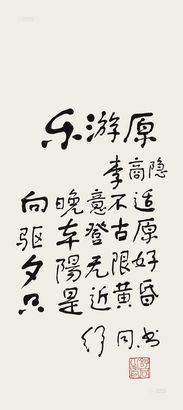 乐游原
李商隐
向晚意不适
驱车登古原
夕陽无限好
只是近黄昏
舒同书